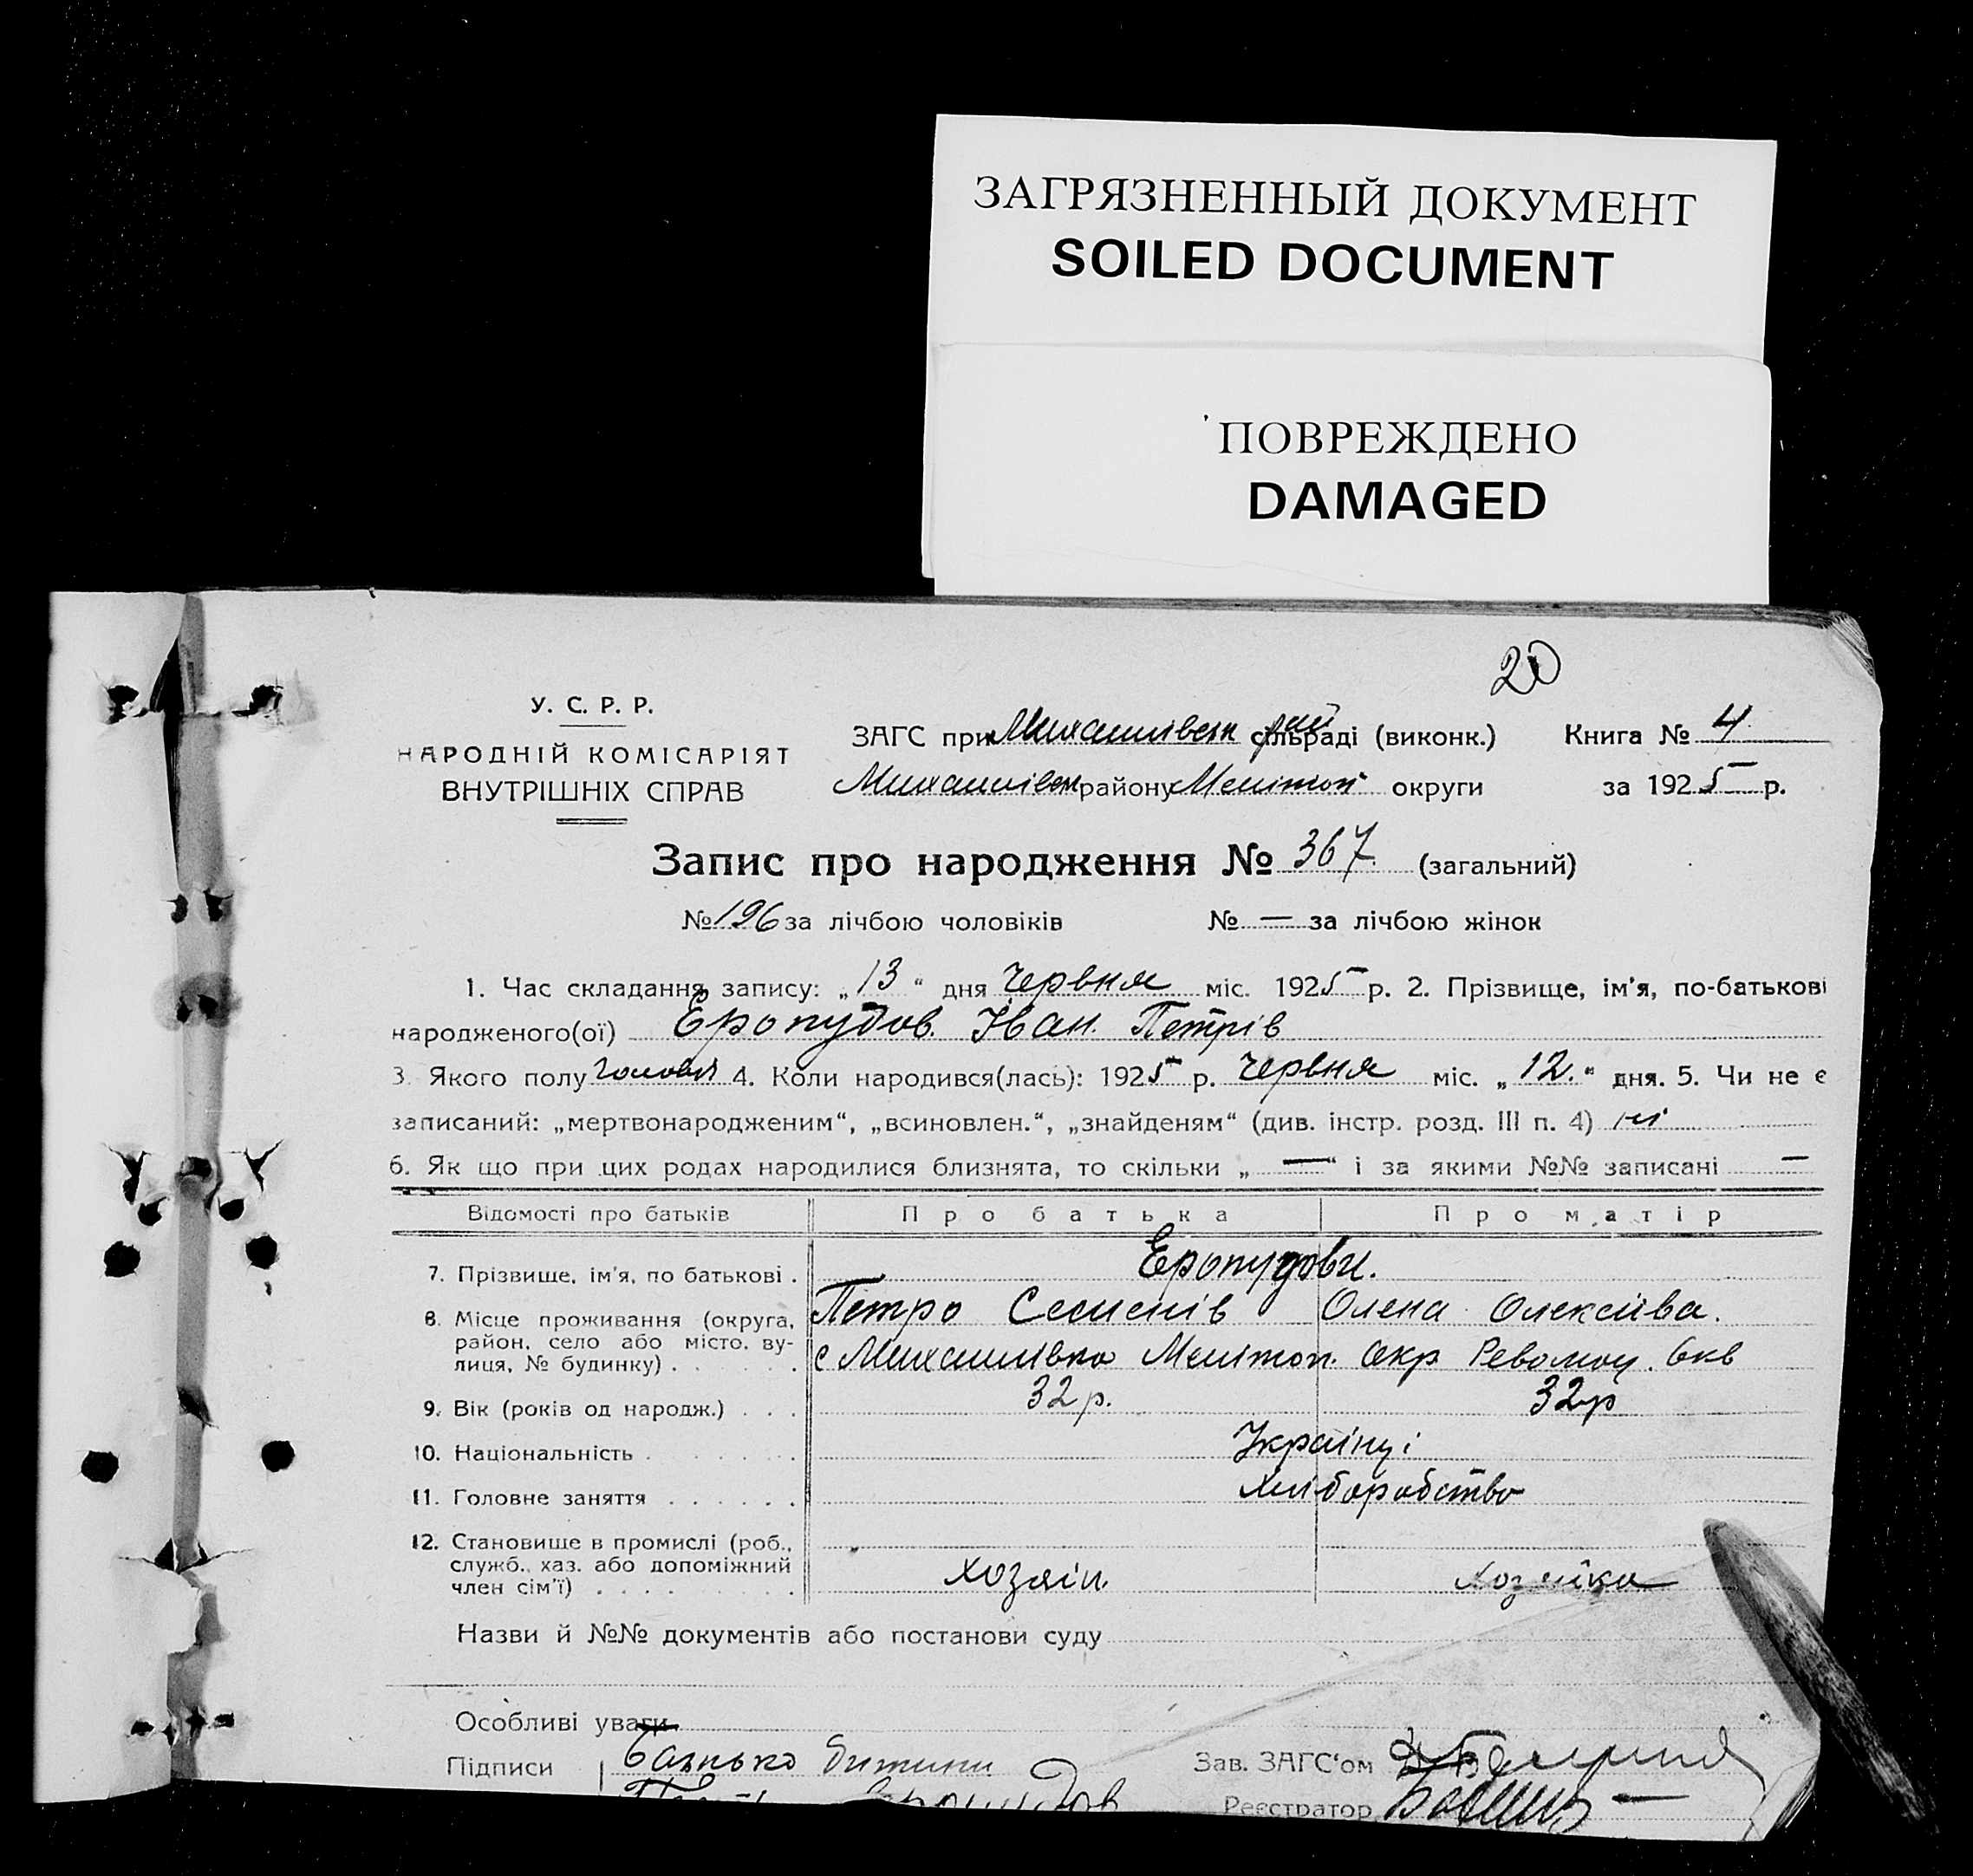 ЗАГРЯЗНЕННЫЙ ДОКУМЕНТ
SOILED DOCUMENT
ПОВРЕЖДЕНО
DAMAGED
20
У. С. Р. Р.
НАРОДНІЙ КОМІСАРІЯТ
ВНУТРІШНІХ СПРАВ
ЗАГС при Михайлівськ рай сільраді (виконк.) Книга № 4
Михайлівськ району Мелітоп округи за 1925 р.
Запис про народження № 367 (загальний)
№ 196 за лічбою чоловіків № — за лічбою жінок
1. Час складання запису: „13“ дня червня міс. 1925 р. 2. Прізвище, ім'я, по-батькові
народженого(ої) Еропудов. Іван. Петрів
3. Якого полу 4. Коли народився(лась): 1925 р. червня міс. „12.“ дня. 5. Чи не є
записаний: „мертвонародженим“, „всиновлен.“, „знайденям“ (див. інстр. розд. III п. 4) ні
6. Як що при цих родах народилися близнята, то скільки „—“ і за якими №№ записані —
Відомості про батьків Про батька Про матір
7. Прізвище, ім'я, по батькові . Еропудови.
Петро Семенів Олена Олексіїва.
8. Місце проживання (округа, район, село або місто, вулиця, № будинку) . . . . . с Михайлівка Мелітоп. окр Революц.
9. Вік (років од народж.) . . . 32 р. 32р
10. Національність . . . . . . . Українці
11. Головне заняття . . . . . . хліборобство
12. Становище в промислі (роб., служб., хаз. або допоміжний член сім'ї) . . . . . . . . . хозяін. хозяйка
Назви й №№ документів або постанови суду
Особливі уваги
Підписи Батько дитини Зав. ЗАГС'ом
Еропудов Реєстратор